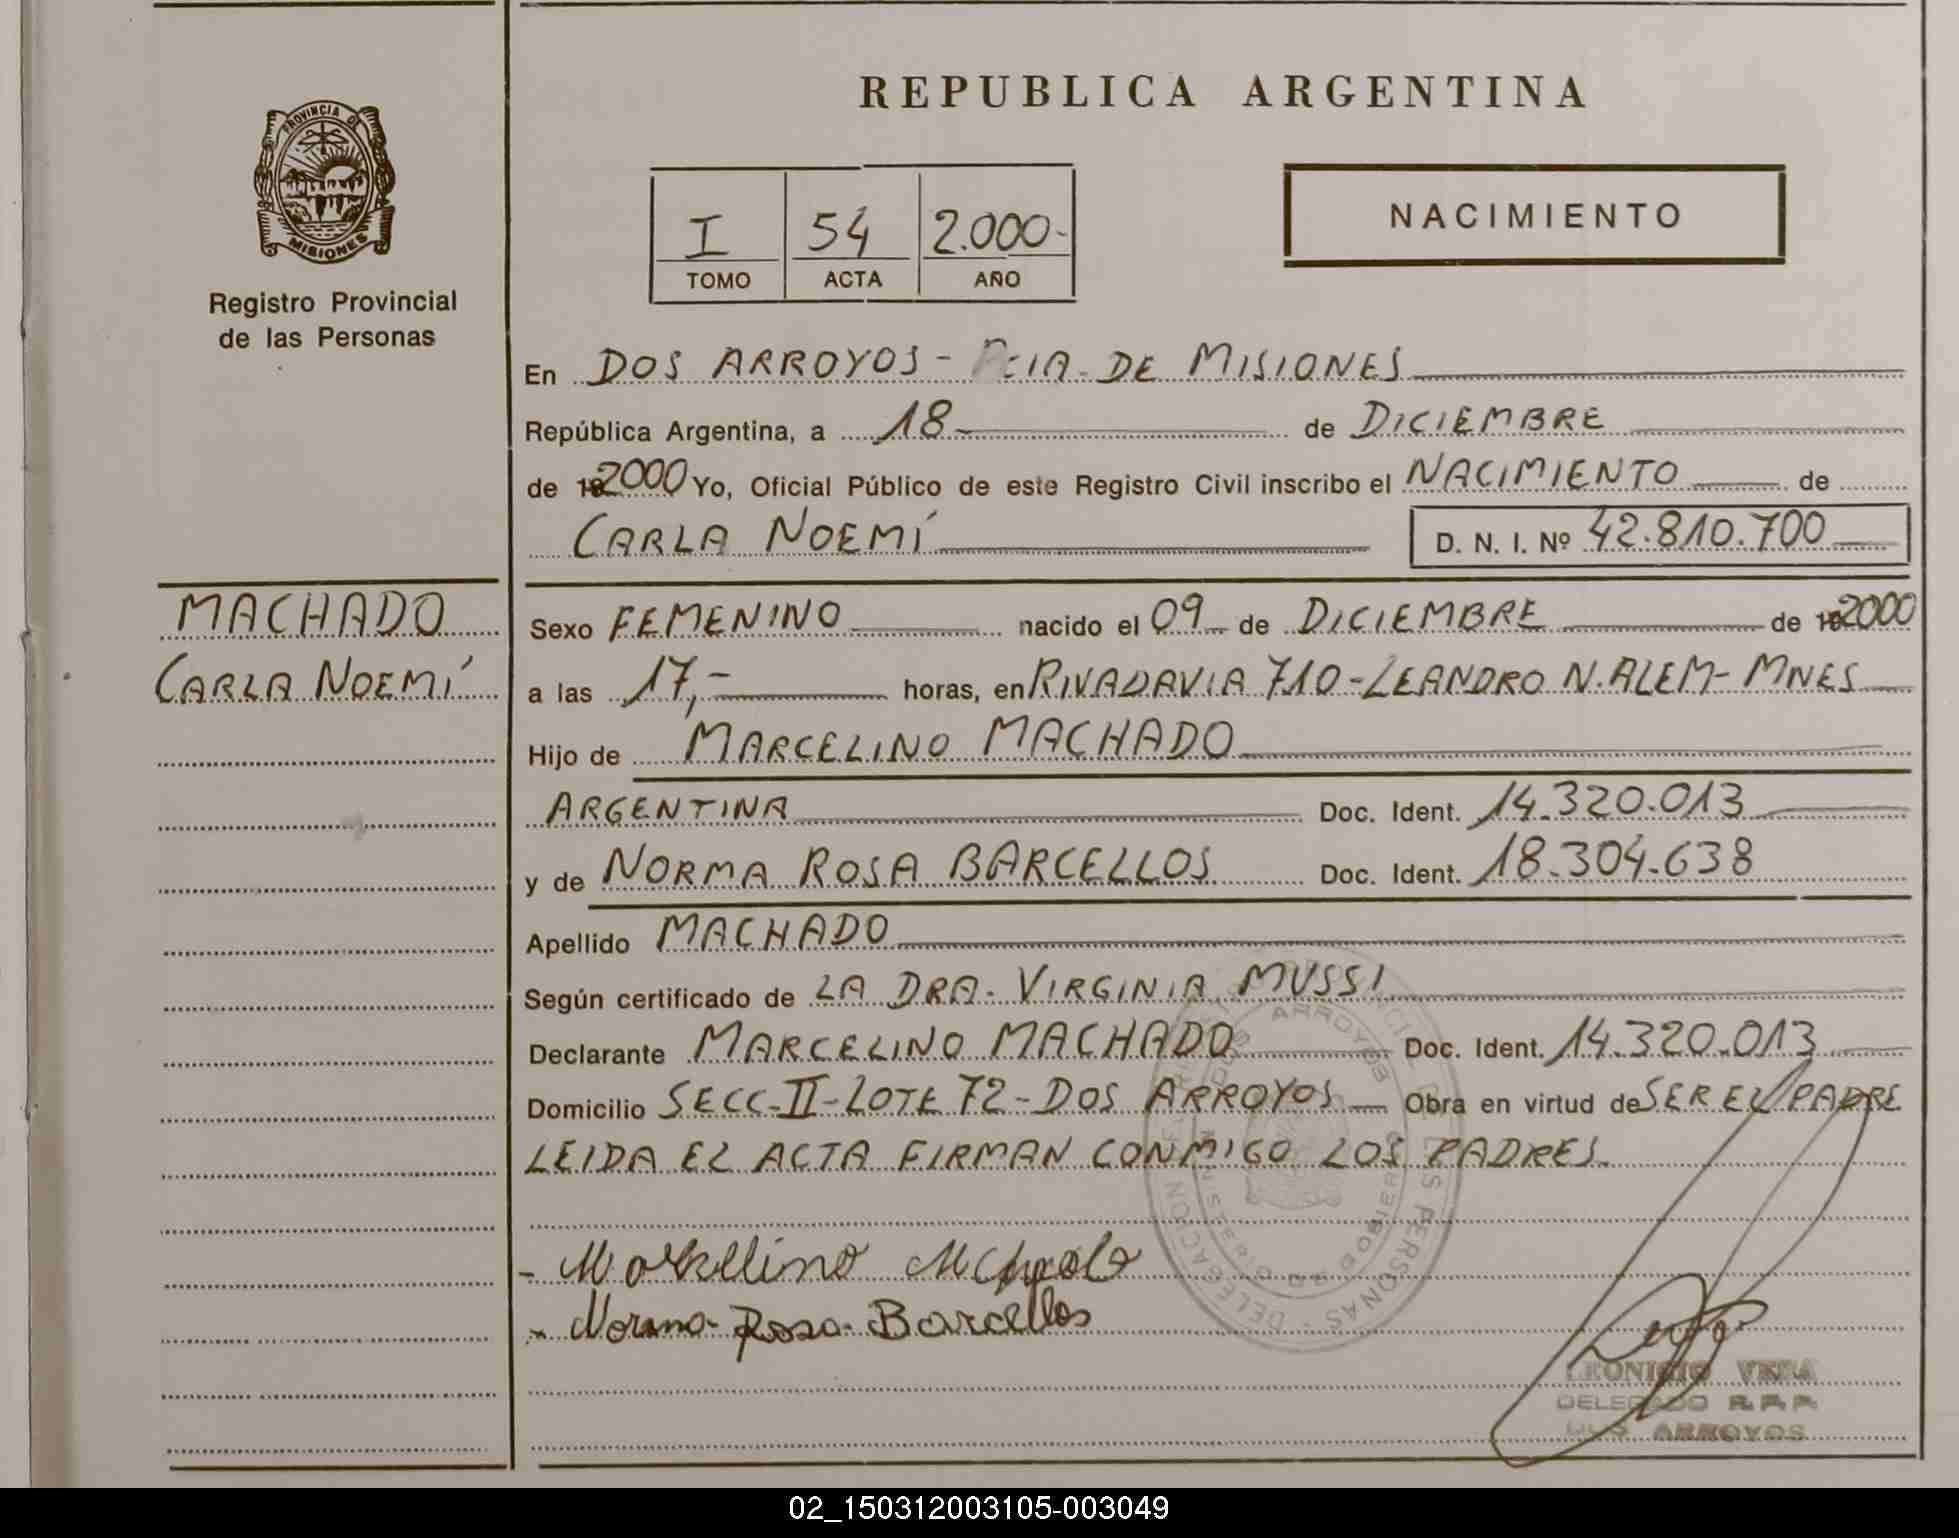 REPUBLICA ARGENTINA
PROVINCIA DE
MISIONES
Registro Provincial
de las Personas
I 54 2.000-
TOMO ACTA AÑO
NACIMIENTO
En DOS ARROYOS - PCIA. DE MISIONES
República Argentina, a 18 de DICIEMBRE
de 2000 Yo, Oficial Público de este Registro Civil inscribo el NACIMIENTO de
CARLA NOEMÍ D. N. I. Nº 42.810.700
MACHADO
CARLA NOEMÍ
Sexo FEMENINO nacido el 09 de DICIEMBRE de 2000
a las 17,- horas, en RIVADAVIA 710 - LEANDRO N. ALEM - MNES
Hijo de MARCELINO MACHADO
ARGENTINA Doc. Ident. 14.320.013
y de NORMA ROSA BARCELLOS Doc. Ident. 18.304.638
Apellido MACHADO
Según certificado de LA DRA. VIRGINIA MUSSI
Declarante MARCELINO MACHADO Doc. Ident. 14.320.013
Domicilio SECC-II-LOTE 72-DOS ARROYOS Obra en virtud de SER EL PADRE
LEIDA EL ACTA FIRMAN CONMIGO LOS PADRES.
- Norma Rosa Barcellos
LEONICIO VERA
DELEGADO R.P.P.
DOS ARROYOS
02_150312003105-003049